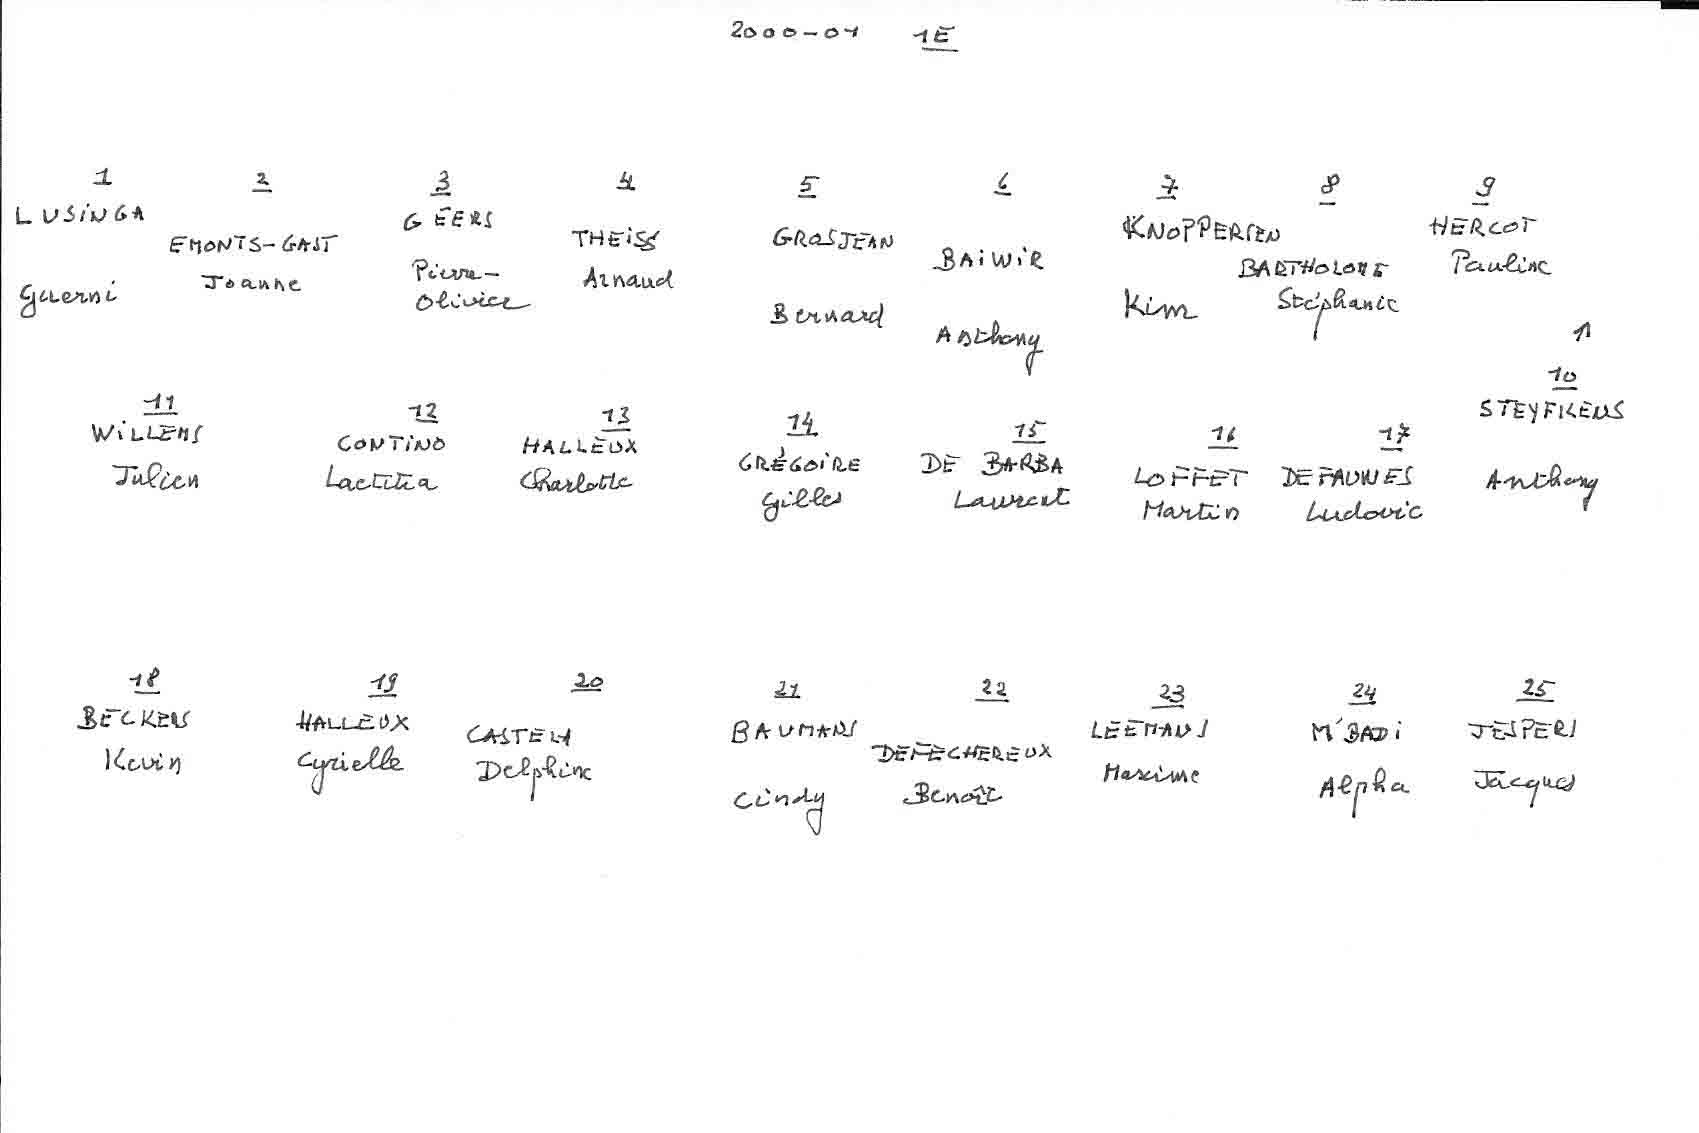 2000-01 1E
1 2 3 4 5 6 7 8 9
LUSINGA EMONTS-GAST GEERS THEISS GROSJEAN BAIWIR KNOPPERSEN BARTHOLOME HERCOT
Guerni Joanne Pierre- Arnaud Bernard Anthony Kim Stéphanie Pauline
Olivier
↑
10
STEYFKENS
Anthony
11 12 13 14 15 16 17
WILLEMS CONTINO HALLEUX GRÉGOIRE DE BARBA LOFFET DEFAUWES
Julien Laetitia Charlotte Gilles Laurent Martin Ludovic
18 19 20 21 22 23 24 25
BECKERS HALLEUX BAUMANS DEFECHEREUX LEEMANS M'BADI JESPERS
Kevin Cyrielle Delphine Cindy Benoît Maxime Alpha Jacques